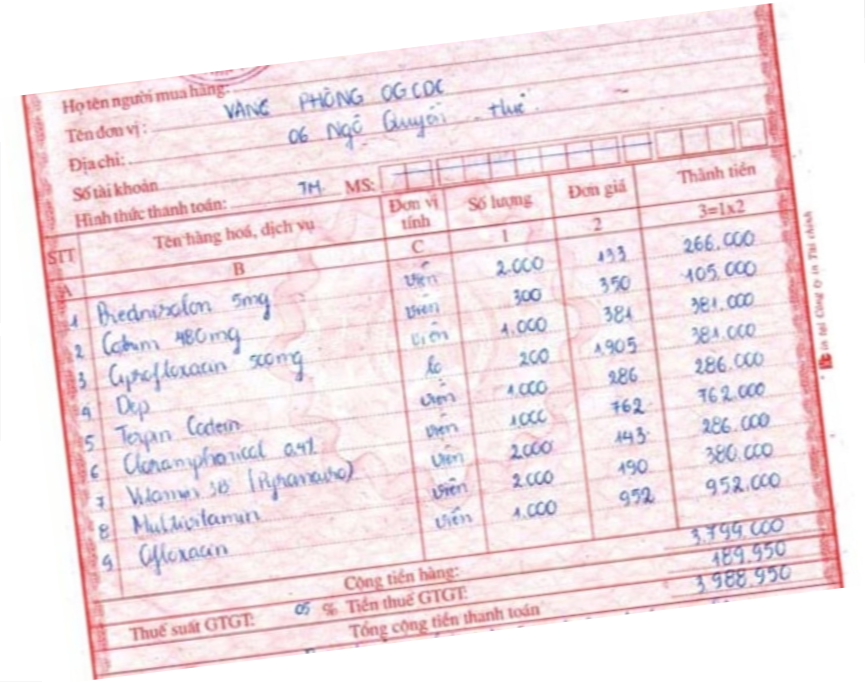 Họ tên người mua hàng:
Tên đơn vị: VĂNG PHÒNG OGCDC
Địa chỉ: 06 Ngô Quyền - Huế
Số tài khoản
Hình thức thanh toán: TM. MS:
STT Tên hàng hoá, dịch vụ Đơn vị tính Số lượng Đơn giá Thành tiền
A B C 1 2 3=1x2
1 Prednisolon 5mg viên 2.000 133 266.000
2 Cotrim 480mg viên 300 350 105.000
3 Ciprofloxacin 500mg viên 1.000 381 381.000
4 Dep lo 200 1.905 381.000
5 Terpin Codein viên 1.000 286 286.000
6 viên 1000 762 762.000
7 Vitamin 3B viên 2000 143 286.000
8 Multivitamin viên 2.000 190 380.000
9 Ofloxacin viên 1.000 952 952.000
Cộng tiền hàng: 3.799.000
Thuế suất GTGT: 05 % Tiền thuế GTGT: 189.950
Tổng cộng tiền thanh toán 3.988.950
in tại Công ty in Tài chính